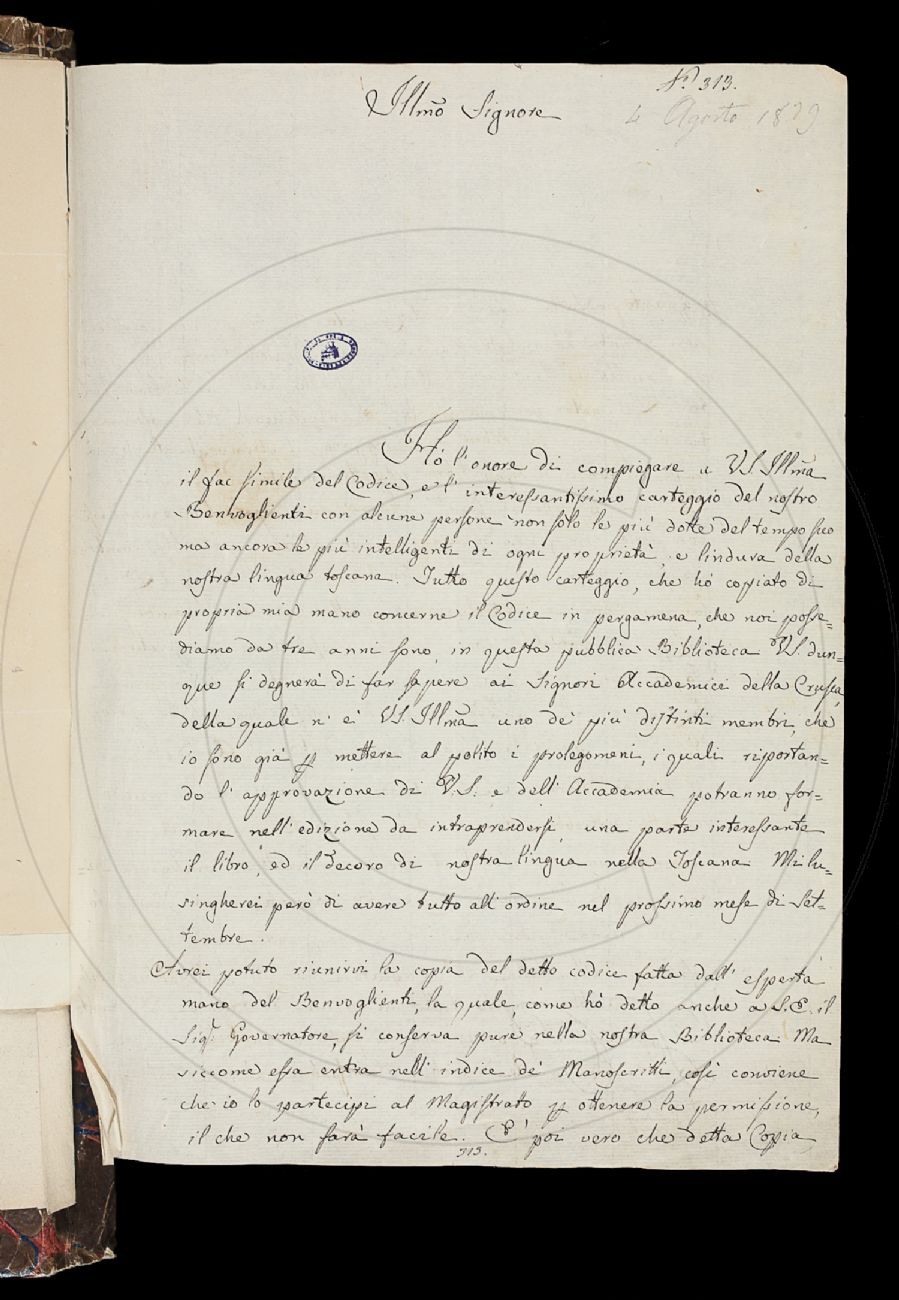 N.º 313.
Illmõ Signore
4 Agosto 1829
Hó l'onore di compiegare a VS. Illmã
il fac simile del Codice, e l'interessantissimo carteggio del nostro
Benvoglienti con alcune persone non sólo le più dotte del tempo suo
ma ancora le più intelligenti di ogni proprietà, e lindura della
nostra lingua toscana. Tutto questo carteggio, che hó copiato di
propria mia mano concerne il Codice in pergamena, che noi posse=
diamo da tre anni sono, in questa pubblica Biblioteca VS. dun=
que si degnerà di far sapere ai Signori Accademici della Crusca,
della quale n'é VS. Illmã uno de' più distinti membri, che
io sono già p mettere al polito i prolegomeni, i quali riportan=
do l'approvazione di V.S. e dell'Accademia potranno for=
mare nell'edizione da intraprendersi una parte interessante
il libro, ed il decoro di nostra lingua nella Toscana Mi lu=
singherei però di avere tutto all'ordine nel prossimo mese di Set=
tembre.
Avrei potuto riunirvi la copia del detto codice fatta dall'esperta
mano del Benvoglienti, la quale, come hò detto anche a S.E. il
Sigr Governatore, si conserva pure nella nostra Biblioteca Ma
siccome essa entra nell'indice de' Manoscritti, così conviene
che io lo partecipi al Magistrato p ottenere la permissione,
il che non sarà facile. E' poi vero che detta Copia
313.